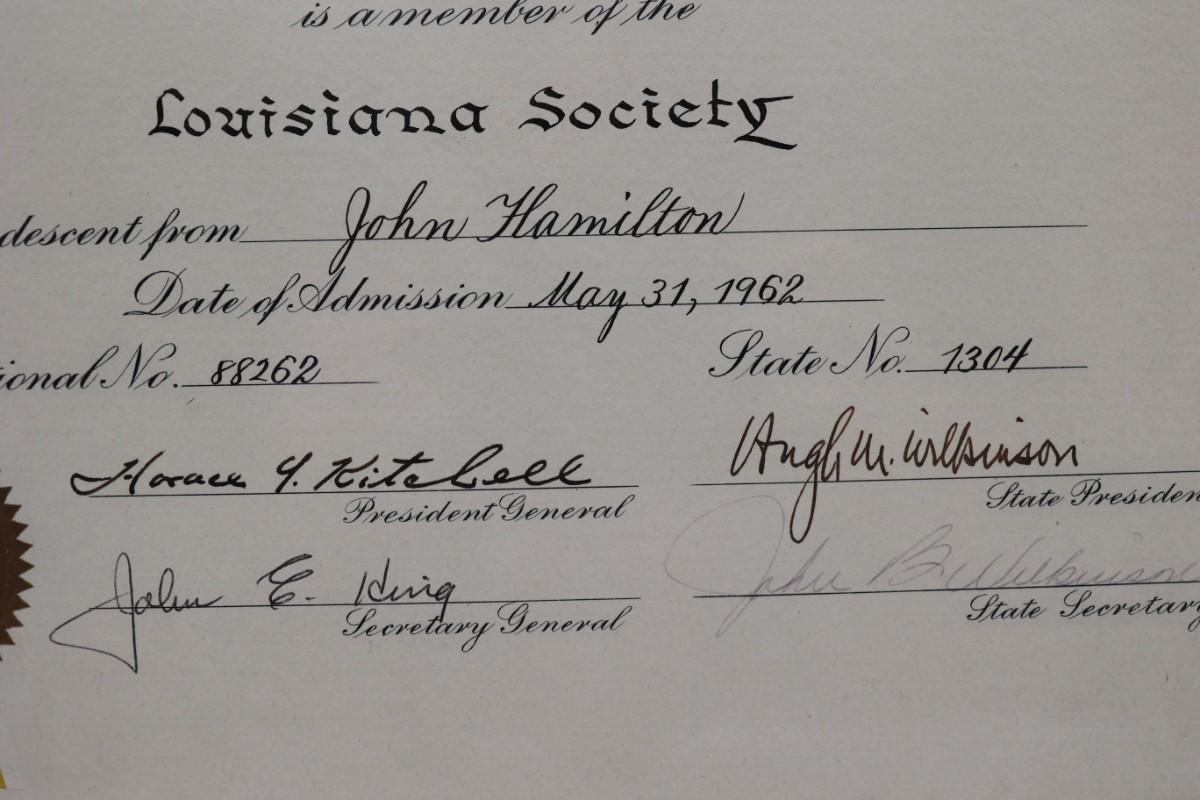 is a member of the
Louisiana Society
descent from John Hamilton
Date of Admission May 31, 1962
ional No. 88262 State No. 1304
Horace Y. Kitchell Hugh M. Wilkinson
President General State Presiden
John E. King John B. Wilkinson
Secretary General State Secretary